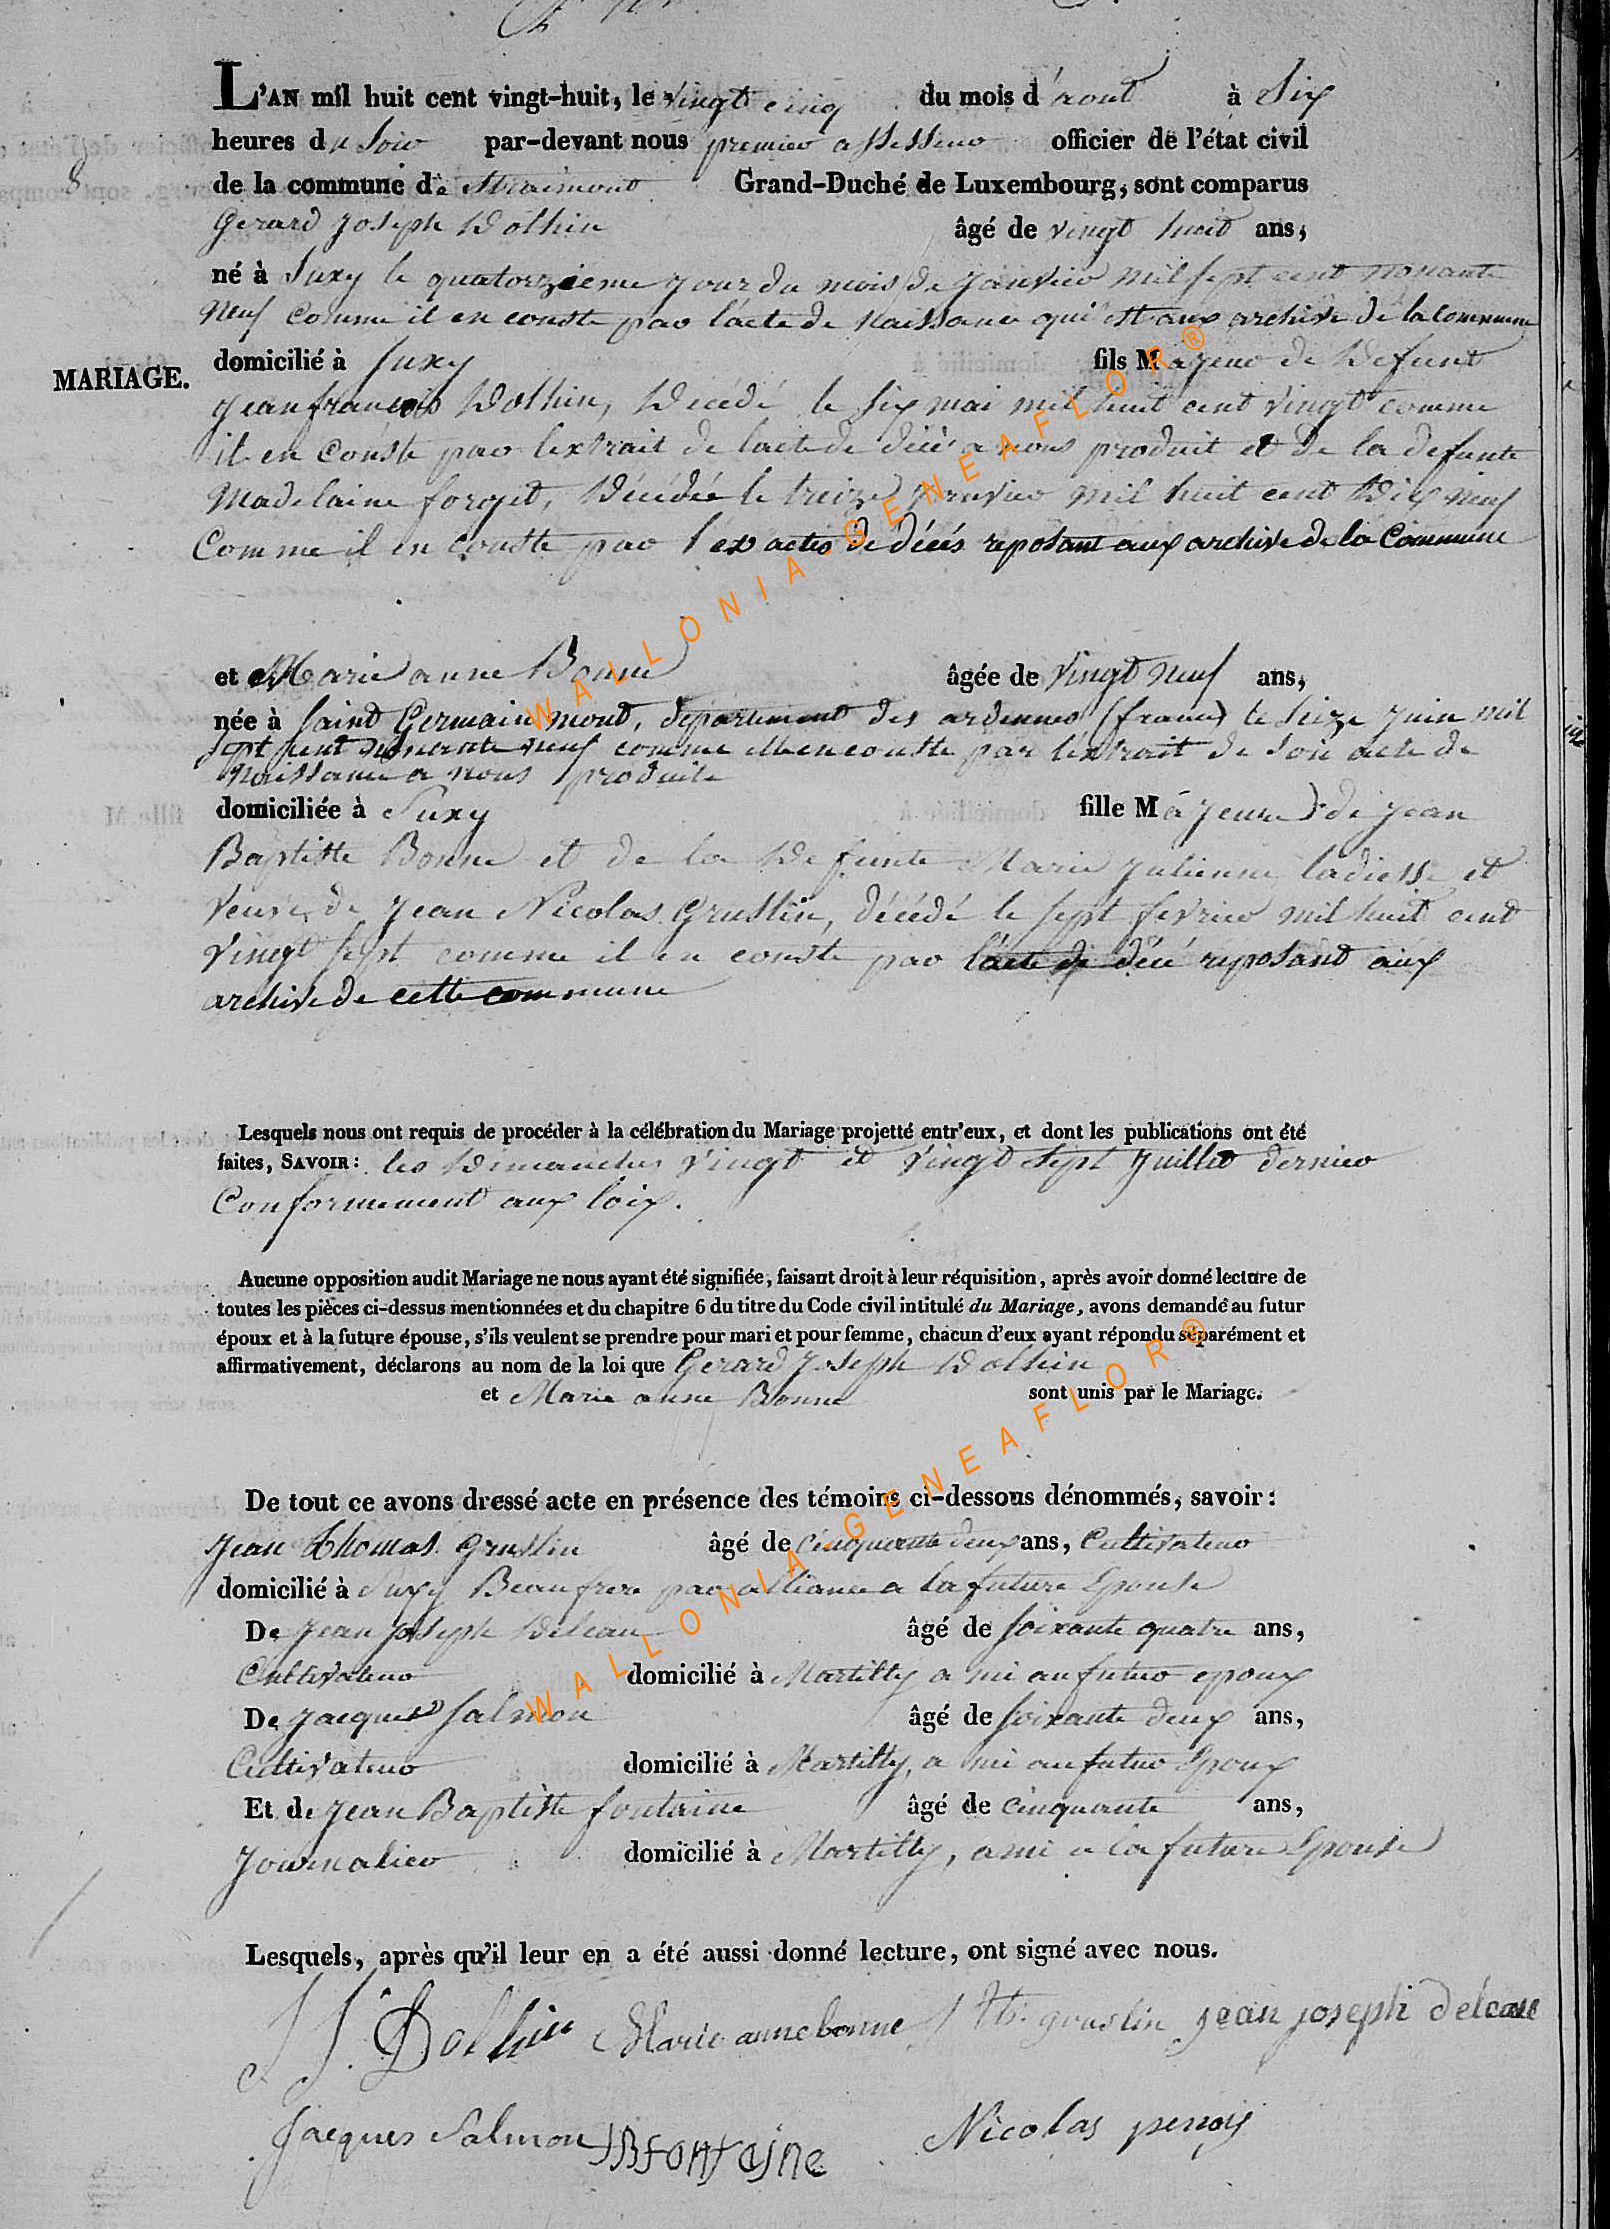 L'AN mil huit cent vingt-huit, le vingt cinq du mois d'aout à Six
heures du Soir par-devant nous premier assesseur officier de l'état civil
8 de la commune de Straimont Grand-Duché de Luxembourg, sont comparus
Gerard Joseph Dothin âgé de vingt huit ans,
né à Suxy le quatorzieme jour du mois de janvier mil sept cent nonante
neuf comme il en conste par l'acte de naissance qui est aux archive de la commune
MARIAGE. domicilié à Suxy fils Majeur de defunt
jean françois Dothin, décédé le six mai mil huit cent vingt comme
il en conste par l'extrait de lacte de décè a nous produit et de la defunte
Madelaine forget, décédée le treize janvier mil huit cent dix neuf
Comme il en conste par l'ex actes de décés reposant aux archive de la Commune
et Marie anne Bonne âgée de vingt neuf ans,
née à Saint Germainmont, departement des ardennes (france) le seize juin mil
sept cent nonante neuf comme elle en conste par l'extrait de son acte de
naissance a nous produite
domiciliée à Suxy fille Majeure de jean
Baptiste Bonne et de la defunte Marie julienne ladiesse et
veuve de jean Nicolas Gruslin, décédé le sept fevrier mil huit cent
vingt sept comme il en conste par l'acte de décé reposant aux
archive de cette commune
Lesquels nous ont requis de procéder à la célébration du Mariage projetté entr'eux, et dont les publications ont été
faites, SAVOIR : les dimanches vingt et vingt sept juillet dernier
Conformement aux loix.
Aucune opposition audit Mariage ne nous ayant été signifiée, faisant droit à leur réquisition, après avoir donné lecture de
toutes les pièces ci-dessus mentionnées et du chapitre 6 du titre du Code civil intitulé du Mariage, avons demandé au futur
époux et à la future épouse, s'ils veulent se prendre pour mari et pour femme, chacun d'eux ayant répondu séparément et
affirmativement, déclarons au nom de la loi que Gerard Joseph Dothin
et Marie anne Bonne sont unis par le Mariage.
De tout ce avons dressé acte en présence des témoins ci-dessous dénommés, savoir :
Jean Thomas Gruslin âgé de cinquante deux ans, Cultivateur
domicilié à Suxy Beaufrere par alliance a la future Epouse
De jean joseph Deleau âgé de soixante quatre ans,
Cultivateur domicilié à Martilly a mi au futur epoux
De jacques Salmon âgé de soixante deux ans,
Cultivateur domicilié à Martilly, a mi au futur Epoux
Et de jean Baptiste fontaine âgé de cinquante ans,
Journalier domicilié à Martilly, ami a la future Epouse
Lesquels, après qu'il leur en a été aussi donné lecture, ont signé avec nous.
Dothin Marie anne bonne J th. gruslin jean joseph deleau
Jacques Salmon JBfontaine Nicolas
WALLONIA-GENEAFLOR®
WALLONIA-GENEAFLOR®